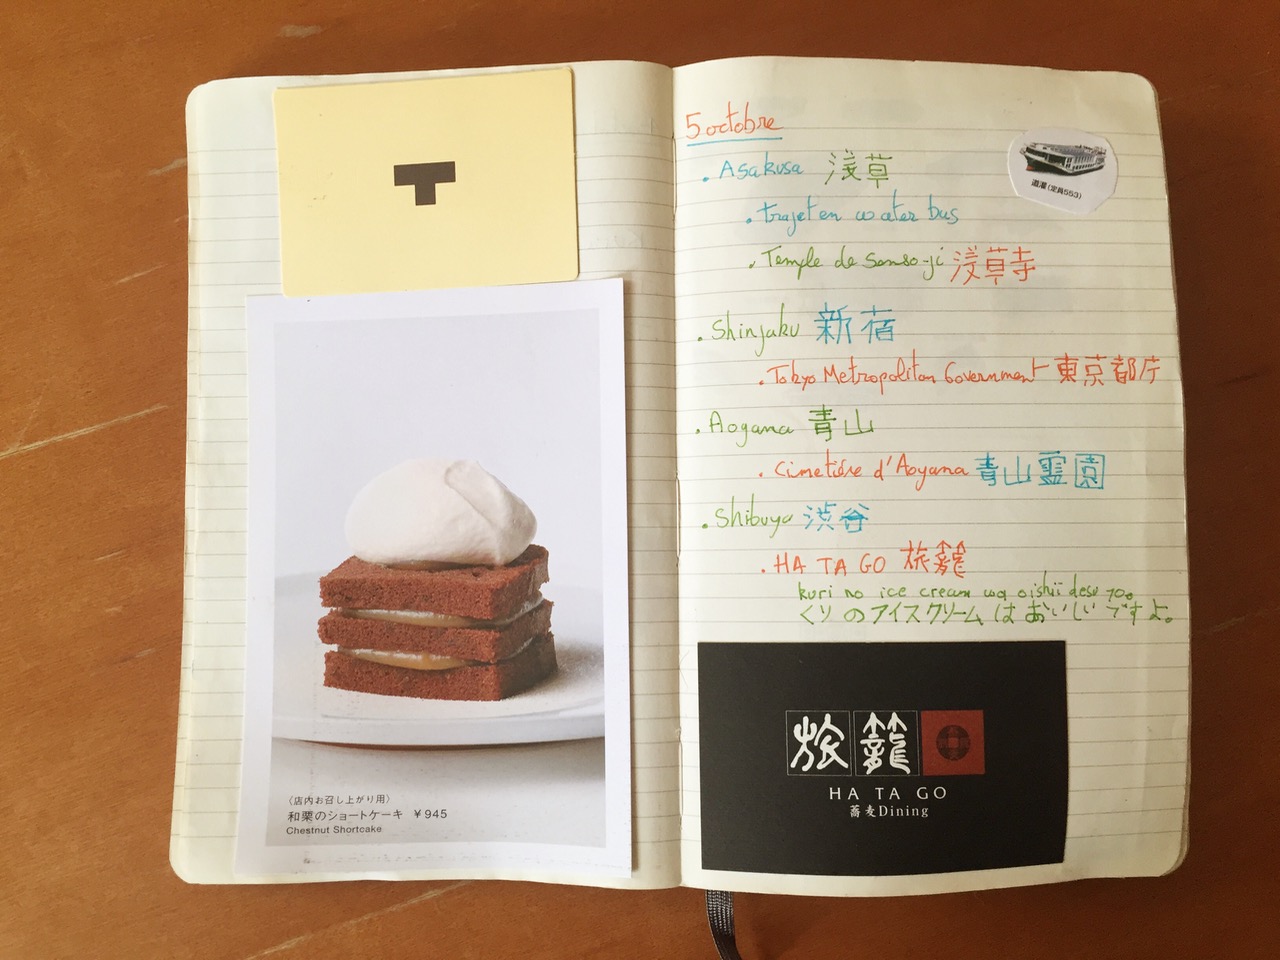 T
〈店内お召し上がり用〉
和栗のショートケーキ ￥945
Chestnut Shortcake
5 octobre
. Asakusa 浅草
道灌（定員553）
. trajet en water bus
. Temple de Senso-ji 浅草寺
. Shinjuku 新宿
. Tokyo Metropolitan Government 東京都庁
. Aoyama 青山
. Cimetière d'Aoyama 青山霊園
. Shibuya 渋谷
. HA TA GO 旅籠
kuri no ice cream wa oishii desu yo。
くりのアイスクリームはおいしいですよ。
旅籠
HA TA GO
蕎麦Dining